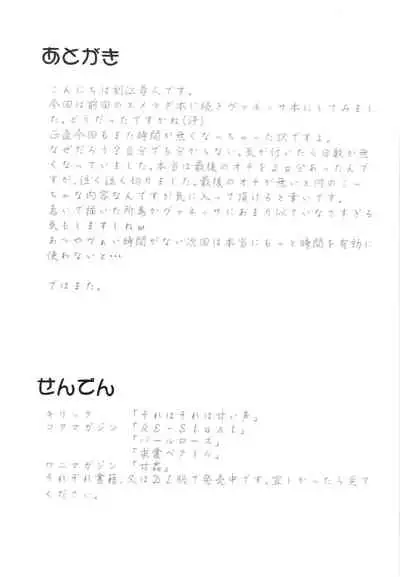 あとがき
こんにちは刻江尋人です。
今回は前回のスメラギ本に続きヴァネッサ本にしてみまし
た。どうだったですかね(汗)
正直今回もまた時間が無くなっちゃった訳ですよ。
なぜだろう?自分でも分からない。気が付いたら日数が無
くなっていました。本当は最後のオチを2日分あったんで
すが、泣く泣く切りました。最後のオチが無いと何のこっ
ちゃな内容なんですが気に入って頂けると幸いです。
急いで描いた所為かヴァネッサにおまんな
気もしますしねw
あつやヴぁい時間がない次回は本当にもっと時間を有効に
使わないと…
ではまた。
せんでん
キリック 「それはそれは甘い声」
コアマガジン 「RE-Slust」
「パールローズ」
「求愛ベクトル」
ワニマガジン 「甘姦」
それぞれ書籍、又はDL版で発売中です。宜しかったら見て
ください。